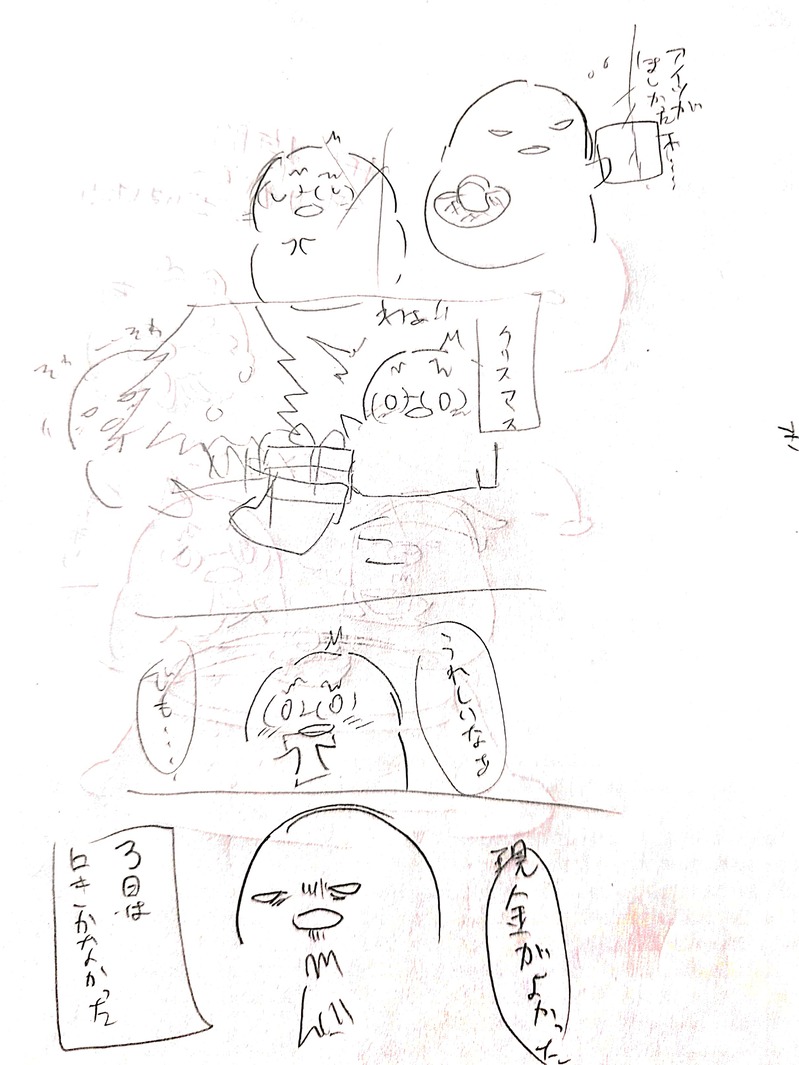 アイツが
ほしかったホ……
わぁ!!
クリスマス
そわ
そわ
うれしいなぁ
でも…
現金がよかった
3日は
口きかなかった